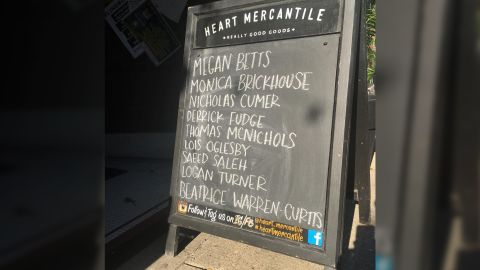 HEART MERCANTILE
REALLY GOOD GOODS
MEGAN BETTS
MONICA BRICKHOUSE
NICHOLAS CUMER
DERRICK FUDGE
THOMAS MCNICHOLS
LOIS OGLESBY
SAEED SALEH
LOGAN TURNER
BEATRICE WARREN-CURTIS
Follow & Tag us on IG/FB @heart_mercantile
#heartmercantile
f